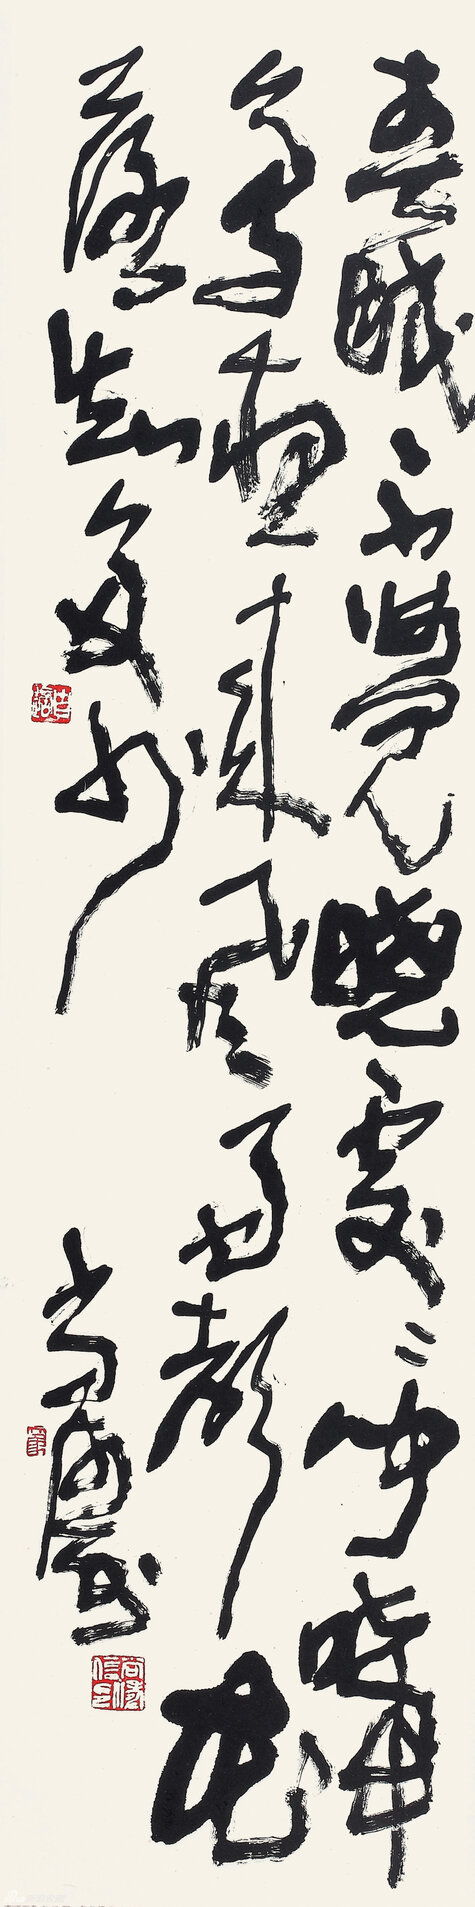 春眠不覺曉處〻聞啼
鳥夜來風雨聲花
落知多少
尚濤